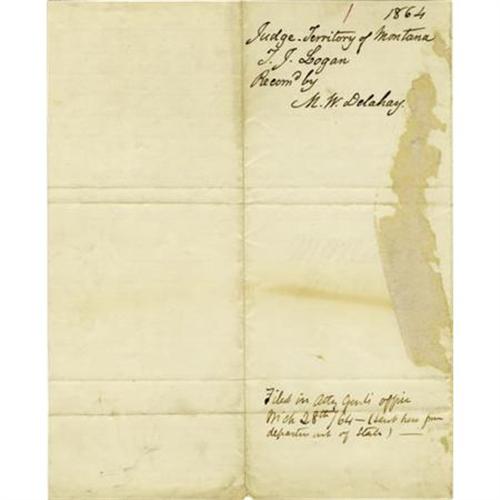 1864
Judge - Territory of Montana
T. J. Logan
Recomd by
M. W. Delahay.
Filed in Atty Genl's office
Mch 28th /64 — (sent here from
department of State) —